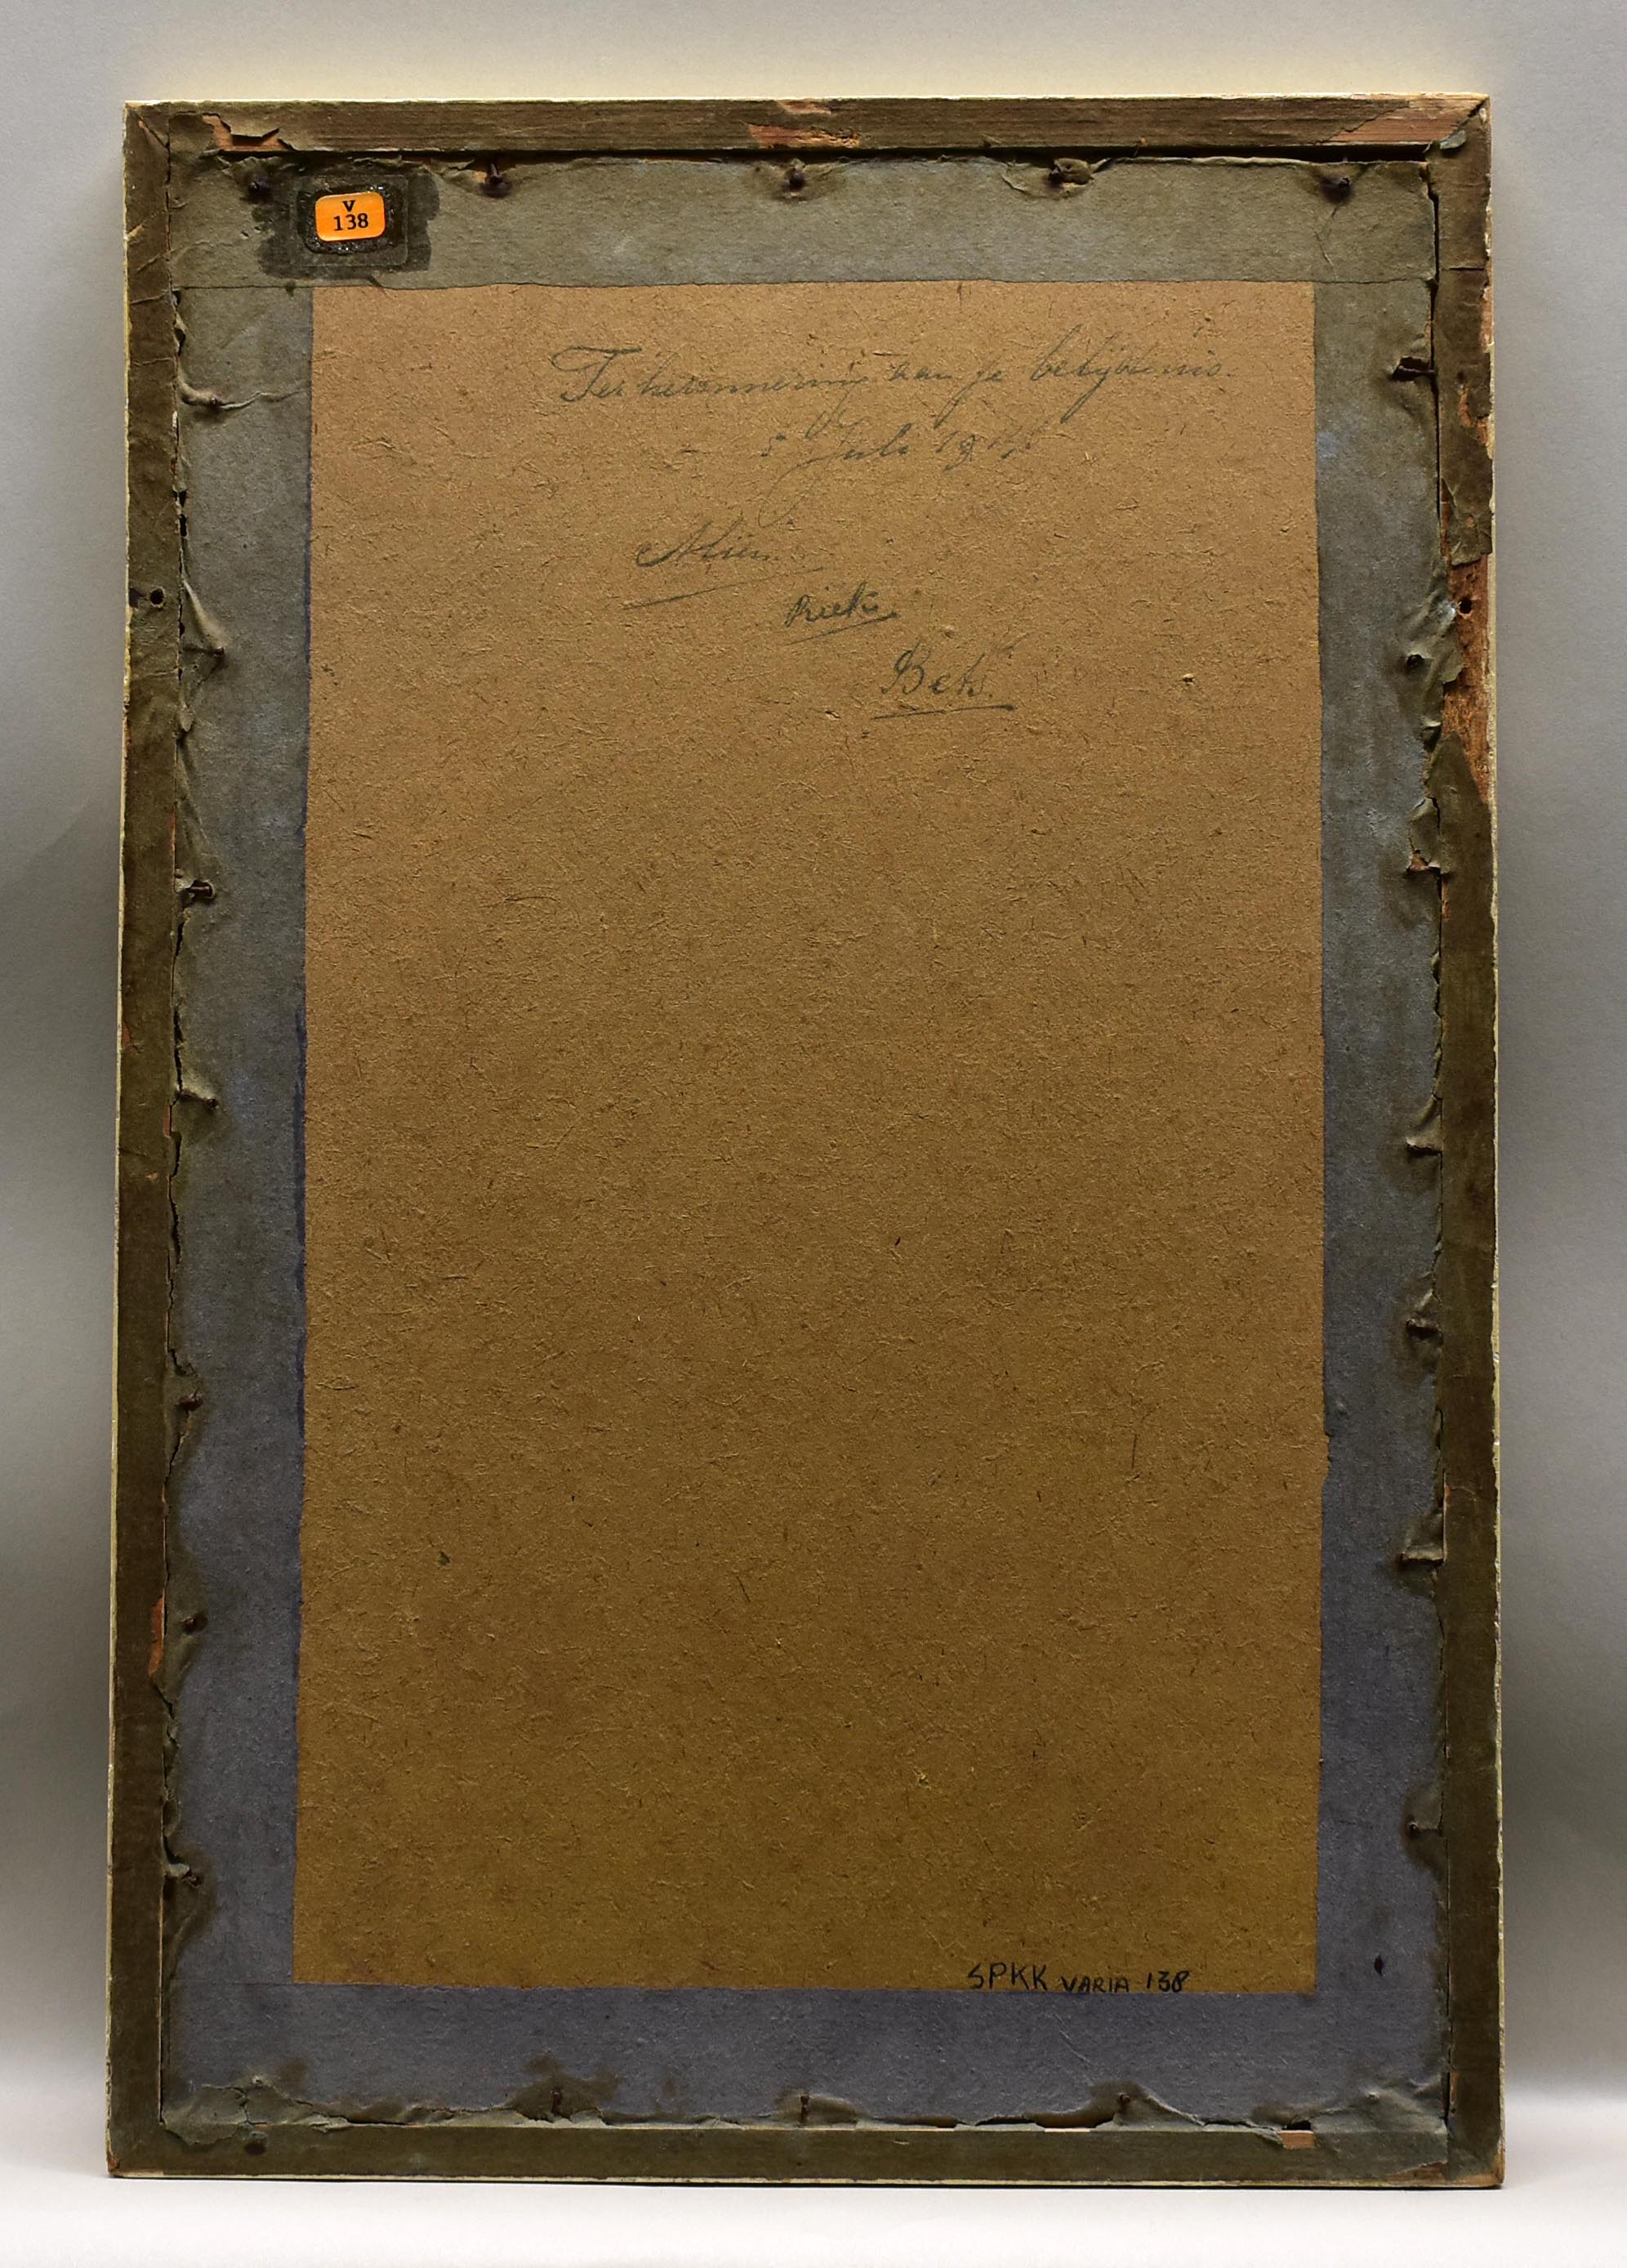 V
138
Ter herinnering aan je belijdenis.
5 Juli
Riek.
Bets.
SPKK VARIA 138